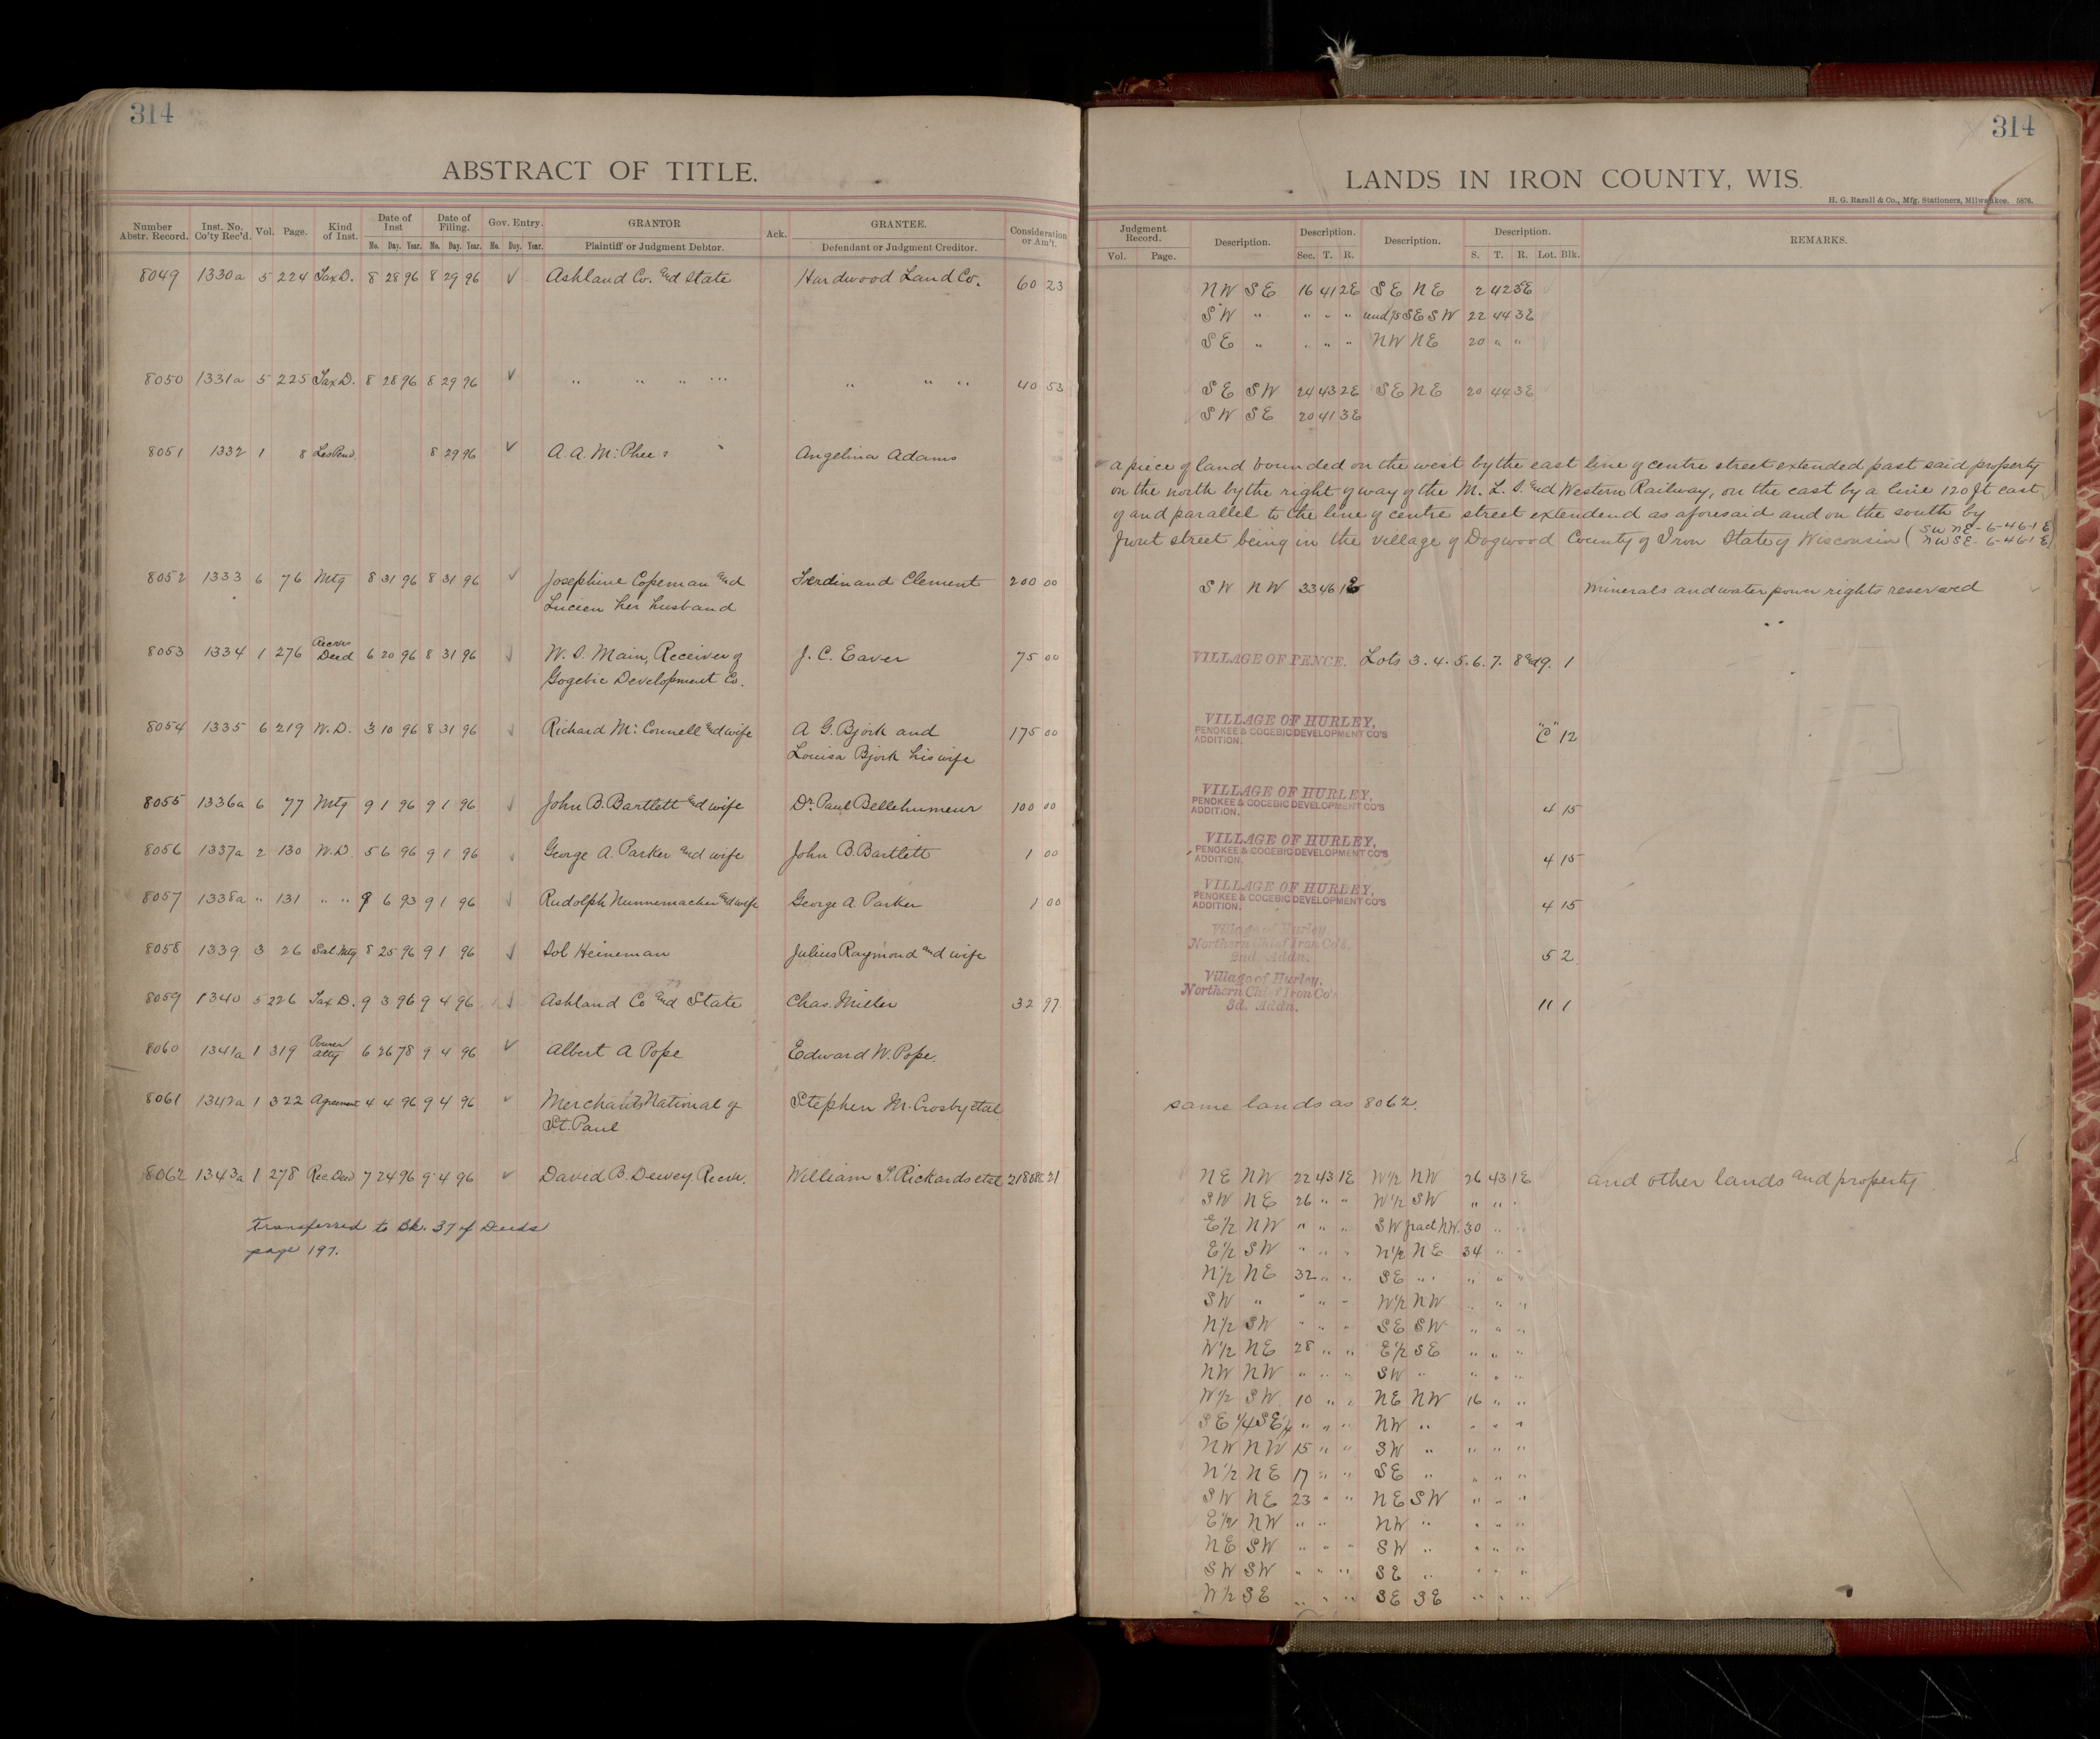 314
ABSTRACT OF TITLE.
Number Abstr. Record. Inst. No. Co'ty Rec'd. Vol. Page. Kind of Inst. Date of Inst Date of Filing. Gov. Entry. GRANTOR Ack. GRANTEE. Consideration or Am't.
No. Day. Year. No. Day. Year. No. Day. Year. Plaintiff or Judgment Debtor. Defendant or Judgment Creditor.
8049 1330a 5 224 Tax D. 8 28 96 8 29 96 ✓ Ashland Co. and State Hardwood Land Co. 60 23
8050 1331a 5 225 Tax D. 8 28 96 8 29 96 ✓ " " " " " " " 40 53
8051 1332 1 8 Les Pend. 8 29 96 ✓ A. A. Mc Phee Angelina Adams
8052 1333 6 76 Mtg 8 31 96 8 31 96 ✓ Josephine Copeman and Ferdinand Clement 200 00
Lucien her husband
8053 1334 1 276 Recvrs Deed 6 20 96 8 31 96 ✓ W. S. Main, Receiver of J. C. Eaver 75 00
Gogebic Development Co.
8054 1335 6 219 W. D. 3 10 96 8 31 96 ✓ Richard Mc Connell and wife A G. Bjork and 175 00
Louisa Bjork his wife
8055 1336a 6 77 Mtg 9 1 96 9 1 96 ✓ John B. Bartlett and wife Dr. Paul Bellehumeur 100 00
8056 1337a 2 130 W. D. 5 6 96 9 1 96 ✓ George A. Parker and wife John B. Bartlett 1 00
8057 1338a " 131 " " 9 6 93 9 1 96 ✓ Rudolph Nunnemacher and wife George A. Parker 1 00
8058 1339 3 26 Sat. Mtg 8 25 96 9 1 96 ✓ Sol Heineman Julius Raymond and wife
8059 1340 5 226 Tax D. 9 3 96 9 4 96 ✓ Ashland Co and State Chas. Miller 32 97
8060 1341a 1 319 Power atty 6 26 78 9 4 96 ✓ Albert A Pope Edward W. Pope.
8061 1342a 1 322 Agreement 4 4 96 9 4 96 ✓ Merchants National of Stephen M. Crosby etal
St. Paul
8062 1343a 1 278 Rec. Deed 7 24 96 9 4 96 ✓ David B. Dewey Recvr. William T. Rickards etal 21808 21
Transferred to Bk. 37 of Deeds
page 197.
314
LANDS IN IRON COUNTY, WIS.
H. G. Razall & Co., Mfg. Stationers, Milwaukee. 5876.
Judgment Record. Description. Description. Description. Description. REMARKS.
Vol. Page. Sec. T. R. S. T. R. Lot. Blk.
NW SE 16 41 2E SE NE 2 42 3E
SW " " " " und 1/5 SE SW 22 44 3E
SE " " " " NW NE 20 " "
SE SW 24 43 2E SE NE 20 44 3E
SW SE 20 41 3E
a piece of land bounded on the west by the east line of centre street extended past said property
on the north by the right of way of the M. L. S. and Western Railway, on the east by a line 120 ft east
of and parallel to the line of centre street extendend as aforesaid and on the south by
front street being in the village of Dogwood County of Iron State of Wisconsin ( SW NE - 6-46-1 E
NW SE - 6-46-1 E)
SW NW 33 46 1E minerals and water power rights reserved
VILLAGE OF PENCE. Lots 3. 4. 5. 6. 7. 8 and 9. 1
VILLAGE OF HURLEY,
PENOKEE & GOGEBIC DEVELOPMENT CO'S
ADDITION. "C" 12
VILLAGE OF HURLEY,
PENOKEE & GOGEBIC DEVELOPMENT CO'S
ADDITION. 4 15
VILLAGE OF HURLEY,
PENOKEE & GOGEBIC DEVELOPMENT CO'S
ADDITION. 4 15
VILLAGE OF HURLEY,
PENOKEE & GOGEBIC DEVELOPMENT CO'S
ADDITION. 4 15
Village of Hurley,
Northern Chief Iron Co's.
2nd. Addn. 5 2
Village of Hurley,
Northern Chief Iron Co's
3d. Addn. 11 1
same lands as 8062.
NE NW 22 43 1E W 1/2 NW 26 43 1E and other lands and property
SW NE 26 " " W 1/2 SW " " "
E 1/2 NW " " " SW fracl NW. 30 " "
E 1/2 SW " " " N 1/2 NE 34 " "
N 1/2 NE 32 " " SE " " " " "
SW " " " " W 1/2 NW " " "
N 1/2 SW " " " SE SW " " "
W 1/2 NE 28 " " E 1/2 SE " " "
NW NW " " " SW " " " "
W 1/2 SW 10 " " NE NW 16 " "
SE 1/4 SE 1/4 " " " NW " " " "
NW NW 15 " " SW " " " "
N 1/2 NE 17 " " SE " " " "
SW NE 23 " " NE SW " " "
E 1/2 NW " " NW " " " "
NE SW " " " SW " " " "
SW SW " " " SE " " " "
W 1/2 SE " " " SE SE " " "